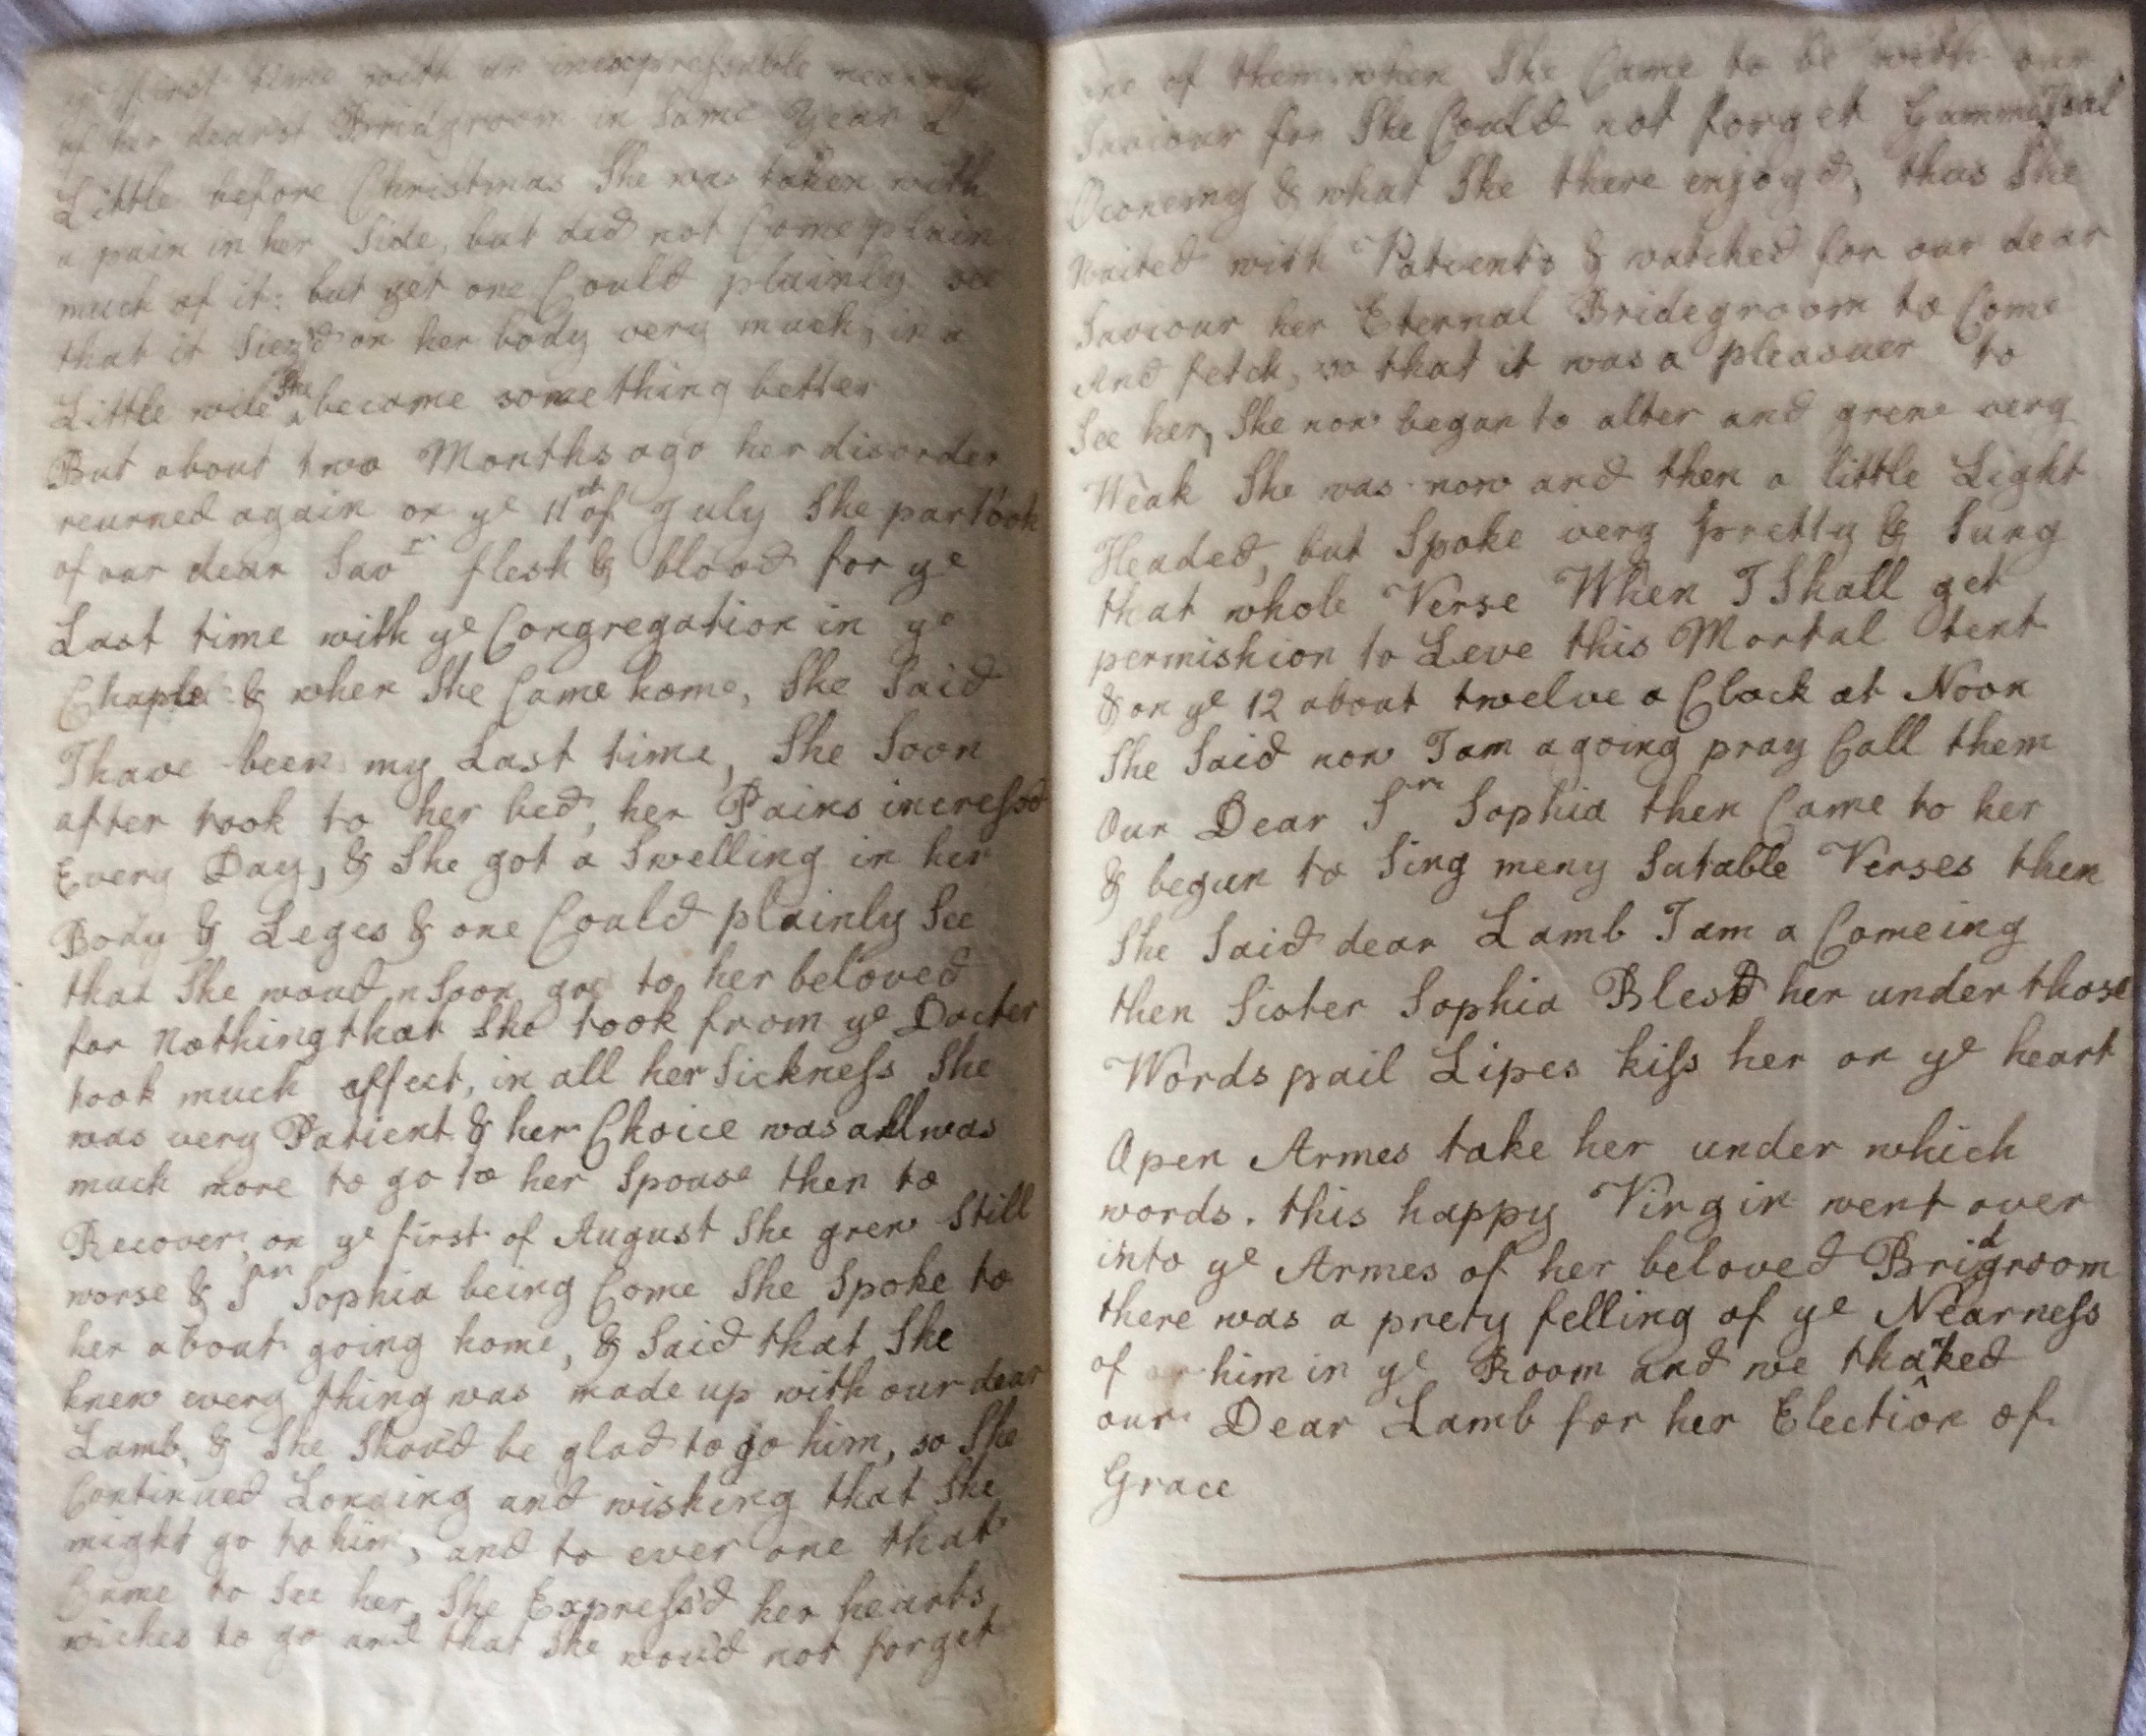 ye first time with an inexpressable nearness
of her dearst Bridgroom in same year a
Little before Christmas She was taken with
a pain in her Side, but did not Complain
much of it: but yet one Could plainly see
that it Siez'd on her body very much, in a
Little wile She became something better
But about two Months ago her disorder
reurned again on ye 11th of July She partook
of our dear Savr flesh & blood for ye
Last time with ye Congregation in ye
Chaple & when She Came home, She Said
I have been my Last time, She Soon
after took to her bed, her Pains incressd
Every Day, & She got a Swelling in her
Body & Leges & one Could plainly See
that She woud Soon goe to her beloved
for nothing that She took from ye Docter
took much affect, in all her Sickness She
was very Patient & her Choice was allwas
much more to go to her Spouse then to
Recover, on ye first of August She grew Still
worse & Sr Sophia being Come She Spoke to
her about going home, & Said that She
knew every thing was made up with our dear
Lamb, & She Shoud be glad to go him, so She
Continued Longing and wishing that She
might go to him, and to ever one that
Came to See her, She Express'd her hearts
wiches to go and that She woud not forget
one of them when She Came to be with our
Saviour for She Could not forget
Oconemy & what She there enjoyd, thus She
waited with Patients & watched for our dear
Saviour her Eternal Bridegroom to Come
And fetch, so that it was a pleasuer to
See her, She now began to alter and grew very
Weak She was now and then a little Light
Headed, but Spoke very pretty & Sung
that whole Verse When I Shall get
permishion to Leve this Mortal tent
& on ye 12 about twelve a Clock at Noon
She Said now I am a going pray Call them
Our Dear Sr Sophia then Came to her
& begun to Sing meny Sutable Verses then
She Said dear Lamb I am a Comeing
then Sister Sophia Blest her under those
Words pail Lipes kiss her on ye heart
Open Armes take her under which
words. this happy Virgin went over
into ye Armes of her beloved Bridgroom
there was a prety felling of ye Nearness
of him in ye Room and we thanked
our Dear Lamb for her Election of
Grace